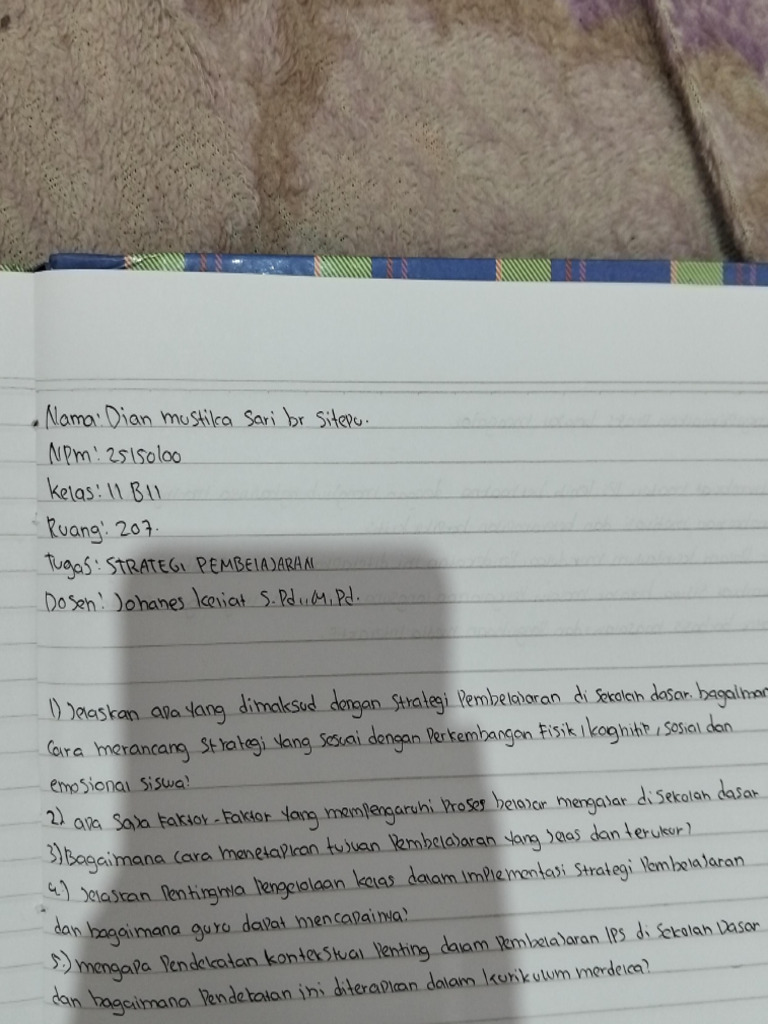 Nama: Dian mustika Sari br Sitepu.
NPm: 25150100
Kelas: 11 B11
Ruang: 207.
Tugas: STRATEGI PEMBELAJARAN
Dosen: Johanes Keriat S.Pd., M.Pd.
1) Jelaskan apa yang dimaksud dengan strategi Pembelajaran di sekolah dasar. bagaiman
Cara merancang strategi yang sesuai dengan Perkembangan Fisik, kognitif, sosial dan
emosional siswa!
2) apa saja Faktor-Faktor yang mempengaruhi Proses belajar mengajar di sekolah dasar
3) Bagaimana cara menetapkan tujuan Pembelajaran yang jelas dan terukur?
4.) Jelaskan Pentingnya Pengelolaan kelas dalam implementasi strategi Pembelajaran
dan bagaimana guru dapat mencapainya!
5.) mengapa Pendekatan kontekstual Penting dalam Pembelajaran IPS di Sekolah Dasar
dan bagaimana Pendekatan ini diterapkan dalam kurikulum merdeka?